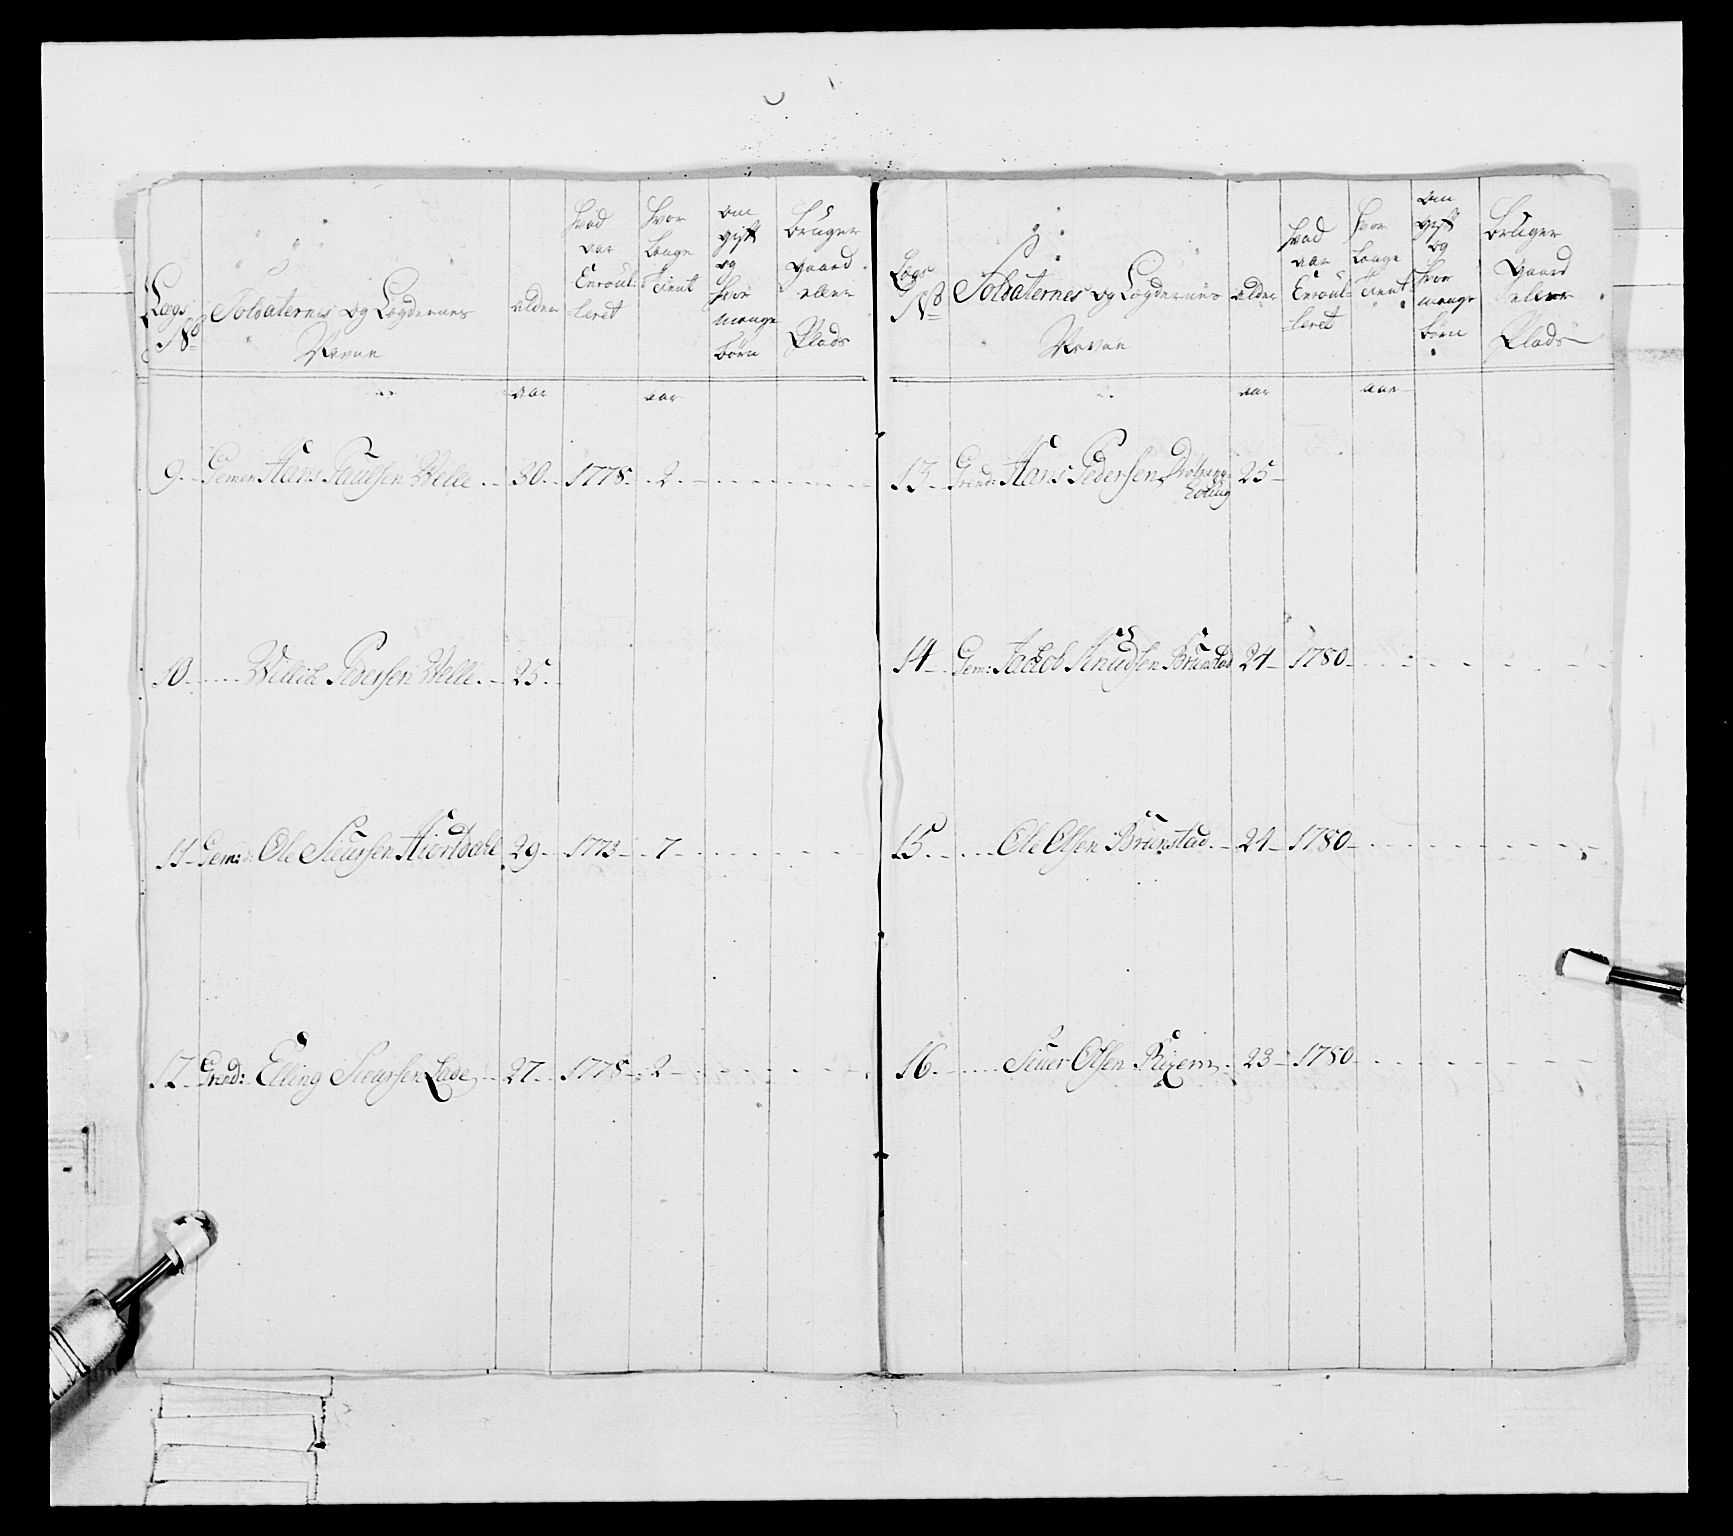 Lægs No
Soldaternes og Lægdernes Navne
alder
hvad aar Enroulleret
hvor Længe Tient
om gift og hvor mange børn
bruger gaard eller Plads
aar aar
9. Gemen Hans Paulsen Welle 30. 1778. 2.
10. Pedersen Welle. 25.
11 Gem: Ole Siursen Hiortdahl 29. 1773 7
12 Grend: Elling Siursen Lade 27. 1778 2
Lægs No
Soldaternes og Lægdernes Navne
alder
hvad aar Enroulleret
hvor Længe Tient
om gift og hvor mange børn
bruger gaard eller Plads
aar aar
13. Grend: Hans Pedersen 25
14 Gem: Jacob Knudsen Brunstad 24 1780
15. Ole Olsen Brunstad. 24 1780
16. Siuer Olsen 23 1780